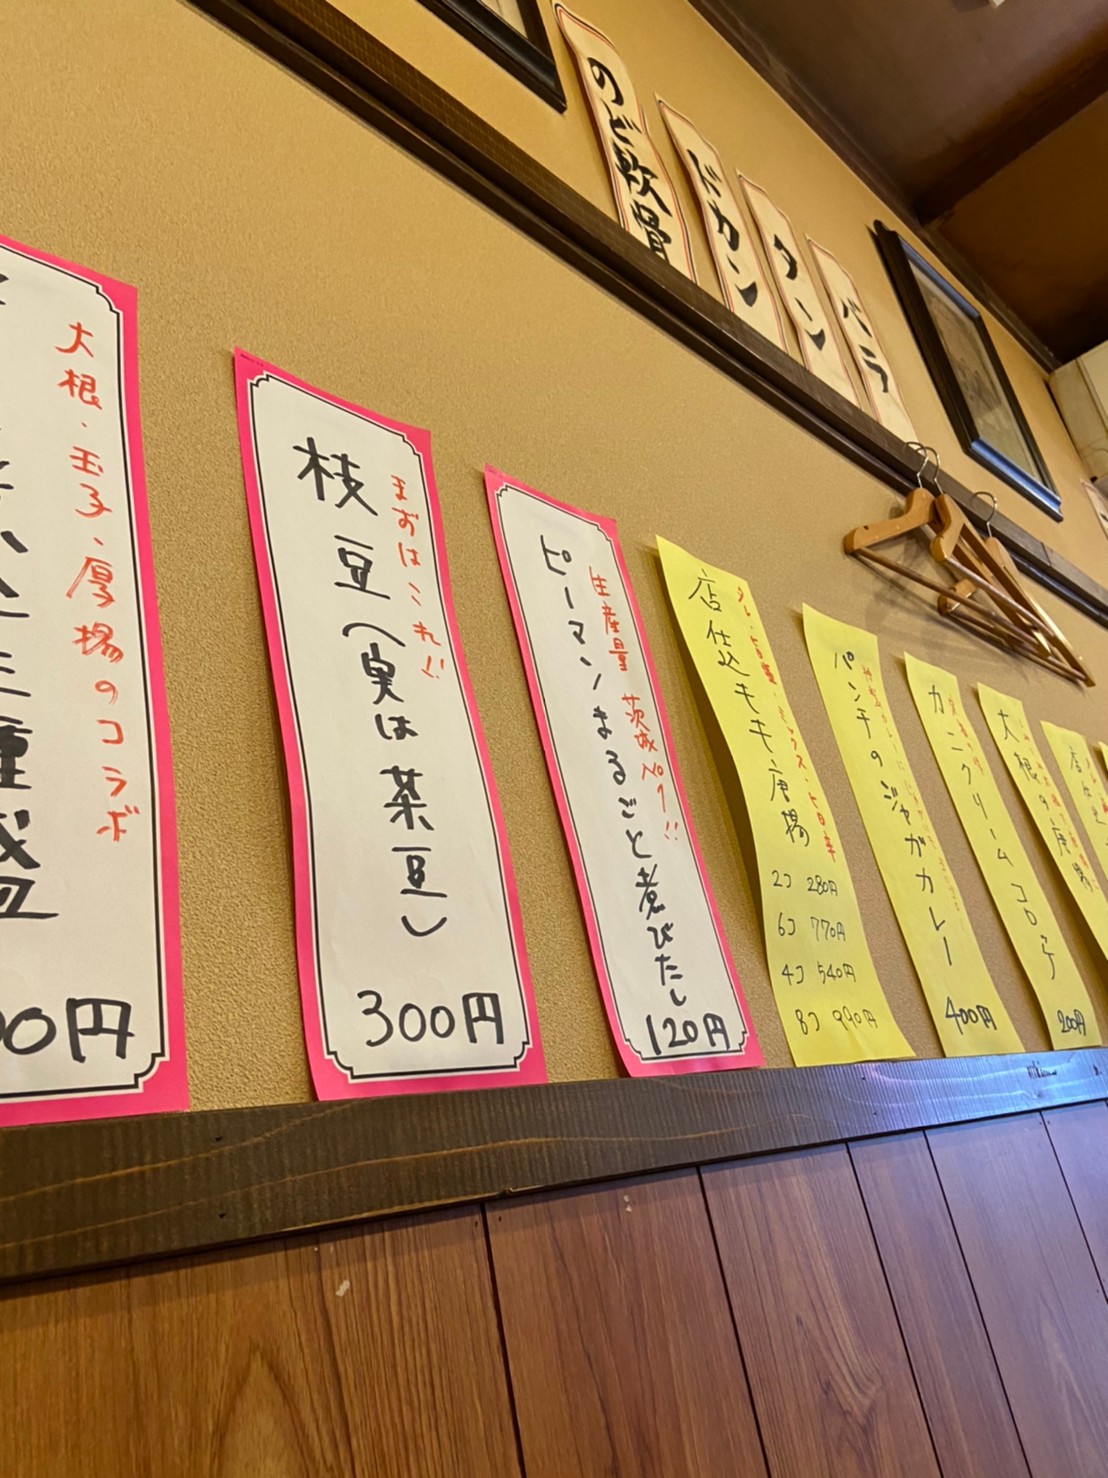 のど軟骨
ドカン
タン
バラ
大根・玉子・厚揚のコラボ
三種盛
00円
まずはこれ!!
枝豆(実は茶豆)
300円
生産量 茨城No1!!
ピーマンまるごと煮びたし
120円
店仕込モモ唐揚
2コ 280円
6コ 770円
4コ 540円
8コ 990円
パンチのジャガカレー
400円
カニクリームコロッケ
200円
大根の唐揚